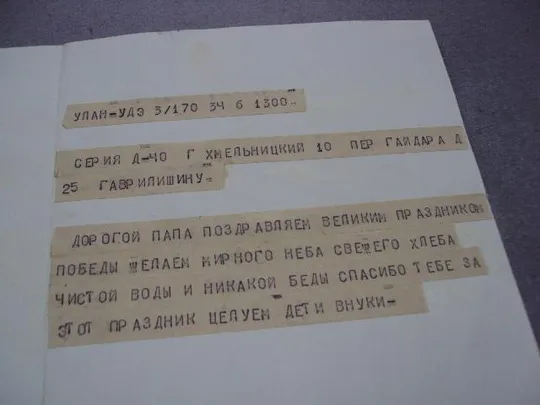 УЛАН-УДЭ 3/170 34 6 1300-
СЕРИЯ Д-40 Г ХМЕЛЬНИЦКИЙ 10 ПЕР ГАЙДАРА Д
25 ГАВРИЛИШИНУ-
ДОРОГОЙ ПАПА ПОЗДРАВЛЯЕМ ВЕЛИКИМ ПРАЗДНИКОМ
ПОБЕДЫ ЖЕЛАЕМ МИРНОГО НЕБА СВЕЩЕГО ХЛЕБА
ЧИСТОЙ ВОДЫ И НИКАКОЙ БЕДЫ СПАСИБО ТЕБЕ ЗА
ЭТОТ ПРАЗДНИК ЦЕЛУЕМ ДЕТИ ВНУКИ-